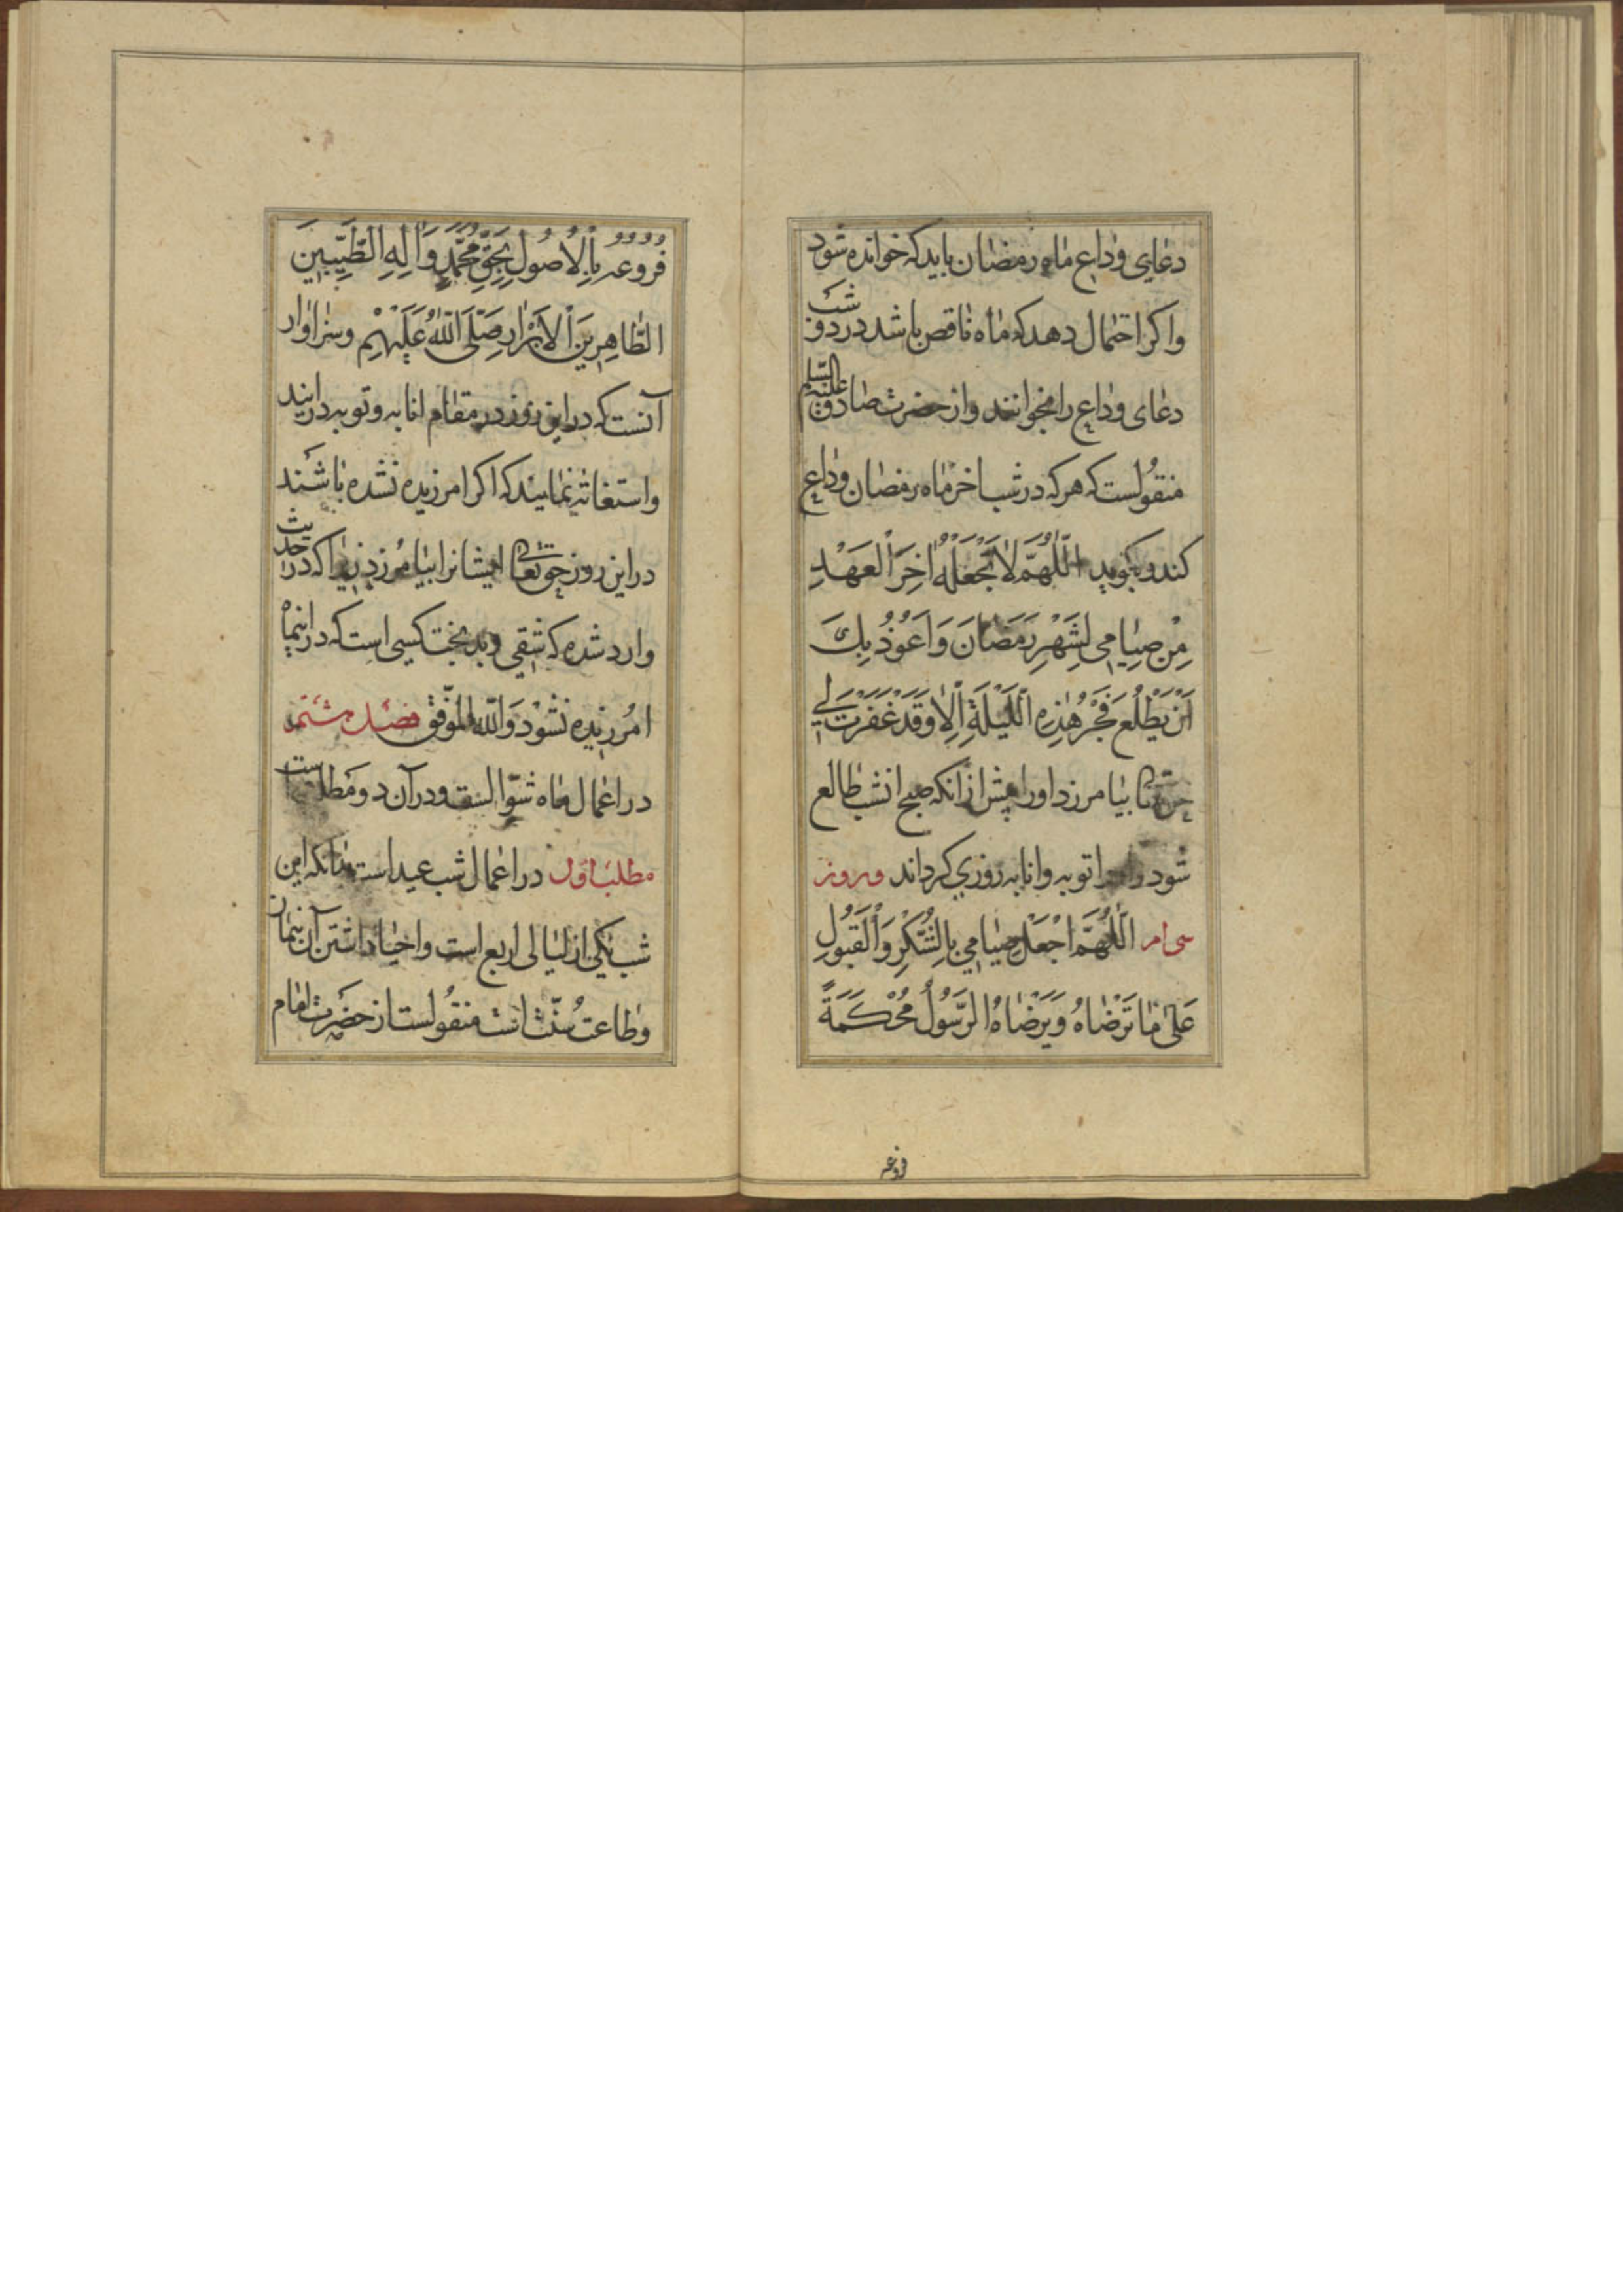 دعای وداع ماه رمضان باید که خوانده شود
واکر احتمال دهد که ماه ناقص باشد در دو شب
دعای وداع را بخوانند واز حضرت صادق علیه السلم
منقولست که هر که در شب اخر ماه رمضان وداع
کند و بکوید اَللّٰهُمَّ لَا تَجْعَلْهُ اٰخِرَ الْعَهْدِ
مِنْ صِیَامِی لِشَهْرِ رَمَضَانَ وَاَعُوذُ بِكَ
اَنْ یَطْلُعَ فَجْرُ هٰذِهِ اللَّیْلَةِ اِلَّا وَقَدْ غَفَرْتَ لِی
حق تعالی بیامرزد اورا پیش از انکه صبح انشب طالع
شود توبه وانابه روزی کرداند و روز
سی ام اَللّٰهُمَّ اجْعَلْ صِیَامِی بِالشُّكْرِ وَالْقَبُولِ
عَلٰی مَا تَرْضَاهُ وَیَرْضَاهُ الرَّسُولُ مُحْكَمَةً
فروعه
فروعه بِالْاُصُولِ بِحَقِّ مُحَمَّدٍ وَاٰلِهِ الطَّیِّبِینَ
الطَّاهِرِینَ الْاَبْرَارِ صَلَّی اللّٰهُ عَلَیْهِمْ وسزاوار
آنست که در این روز در مقام انابه و توبه درایند
واستغاثه نمایند که اکر امرزیده نشده باشند
در این روز حق تعالی ایشانرا بیامرزد زیرا که در حدیث
وارد شده که شقی و بدبخت کسی است که در اینماه
امرزیده نشود وَاللّٰه الموفّق فصل هشتم
در اعمال ماه شوّالست و در آن دو مطلبست
مطلب اوّل در اعمال شب عید است بدانکه این
شب یکی از لیالی اربع است و احیا داشتن آن بنماز
وطاعت سنّت است منقولست از حضرت امام